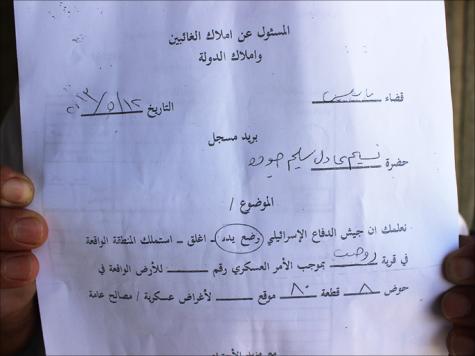 المسئول عن املاك الغائبين
واملاك الدولة
قضاء
التاريخ ١٢/٥/٢٠١٣
بريد مسجل
حضرة نسيم عادل سليم
الموضوع /
نعلمك ان جيش الدفاع الإسرائيلي وضع يده - اغلق - استملك المنطقة الواقعة
في قرية بموجب الأمر العسكري رقم للأرض الواقعة في
حوض ٨ قطعة ٨٠ موقع لأغراض عسكرية / مصالح عامة